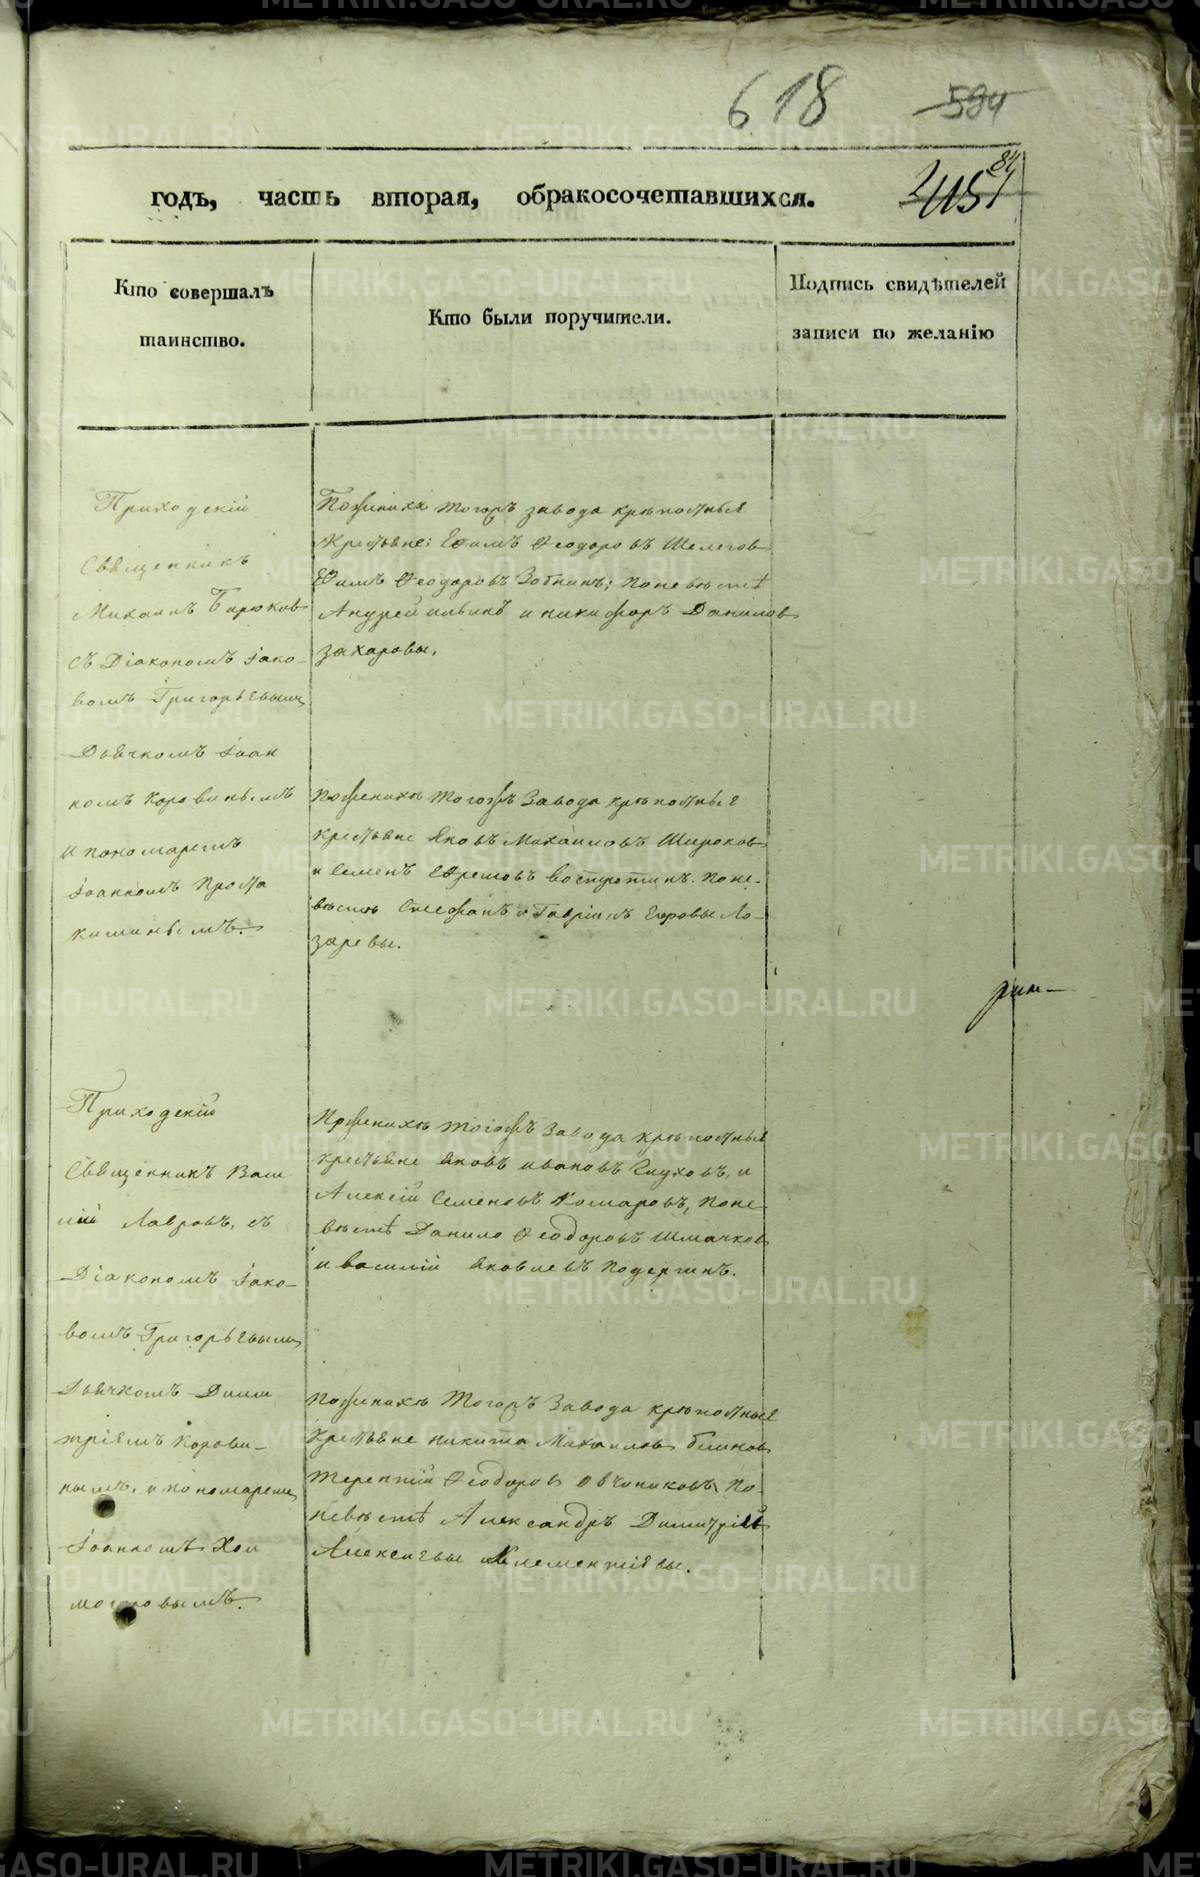 618 594
84
годъ, часть вторая, обракосочетавшихся.
Кто совершалъ
таинство.
Кто были поручители.
Подпись свидѣтелей
записи по желанію
Приходскій
Священникъ
Михаилъ Бирюков
съ Діакономъ Іако-
вомъ Григорьевымъ
Дьячкомъ Іоан
номъ Коровинымъ
и пономаремъ
Іоанномъ Проста
кишинымъ.
Поженихѣ тогожъ завода крѣпостные
Крестьяне: Ефимъ Ѳеодоровъ Шелегов
Ефимъ Ѳеодоровъ Зобнинъ; поневѣстѣ
Андрей ильинъ и никифоръ Данилов
захаровы.
поженихѣ тогожъ Завода крѣпостные
крестьяне Яковъ Михаиловъ Широков
и Семенъ Ефремовъ востротинъ. поне-
вѣстѣ Стефанъ и Гавріилъ Егоровы Ла-
заревы.
рим-
Приходскій
Священникъ Васи
лій Лавровъ, съ
Діакономъ Іако-
вомъ Григорьевымъ
Дьячкомъ Дими
тріемъ Корови-
нымъ, и пономаремъ
Іоанномъ Хол
могоровымъ.
Поженихѣ тогожъ Завода крѣпостные
крестьяне Яковъ ивановъ Глуховъ, и
Алексій Семеновъ Комаровъ, поне-
вѣстѣ Данило Ѳеодоровъ Шмачков
и василій Яковлевъ Подергинъ.
поженихѣ тогожъ Завода крѣпостные
крестьяне никита Михаилов блинов
терентій Ѳеодоров овчиниковъ по-
невѣстѣ Александръ Димитрій
Алексіевы Клементіевы.
METRIKI.GASO-URAL.RU